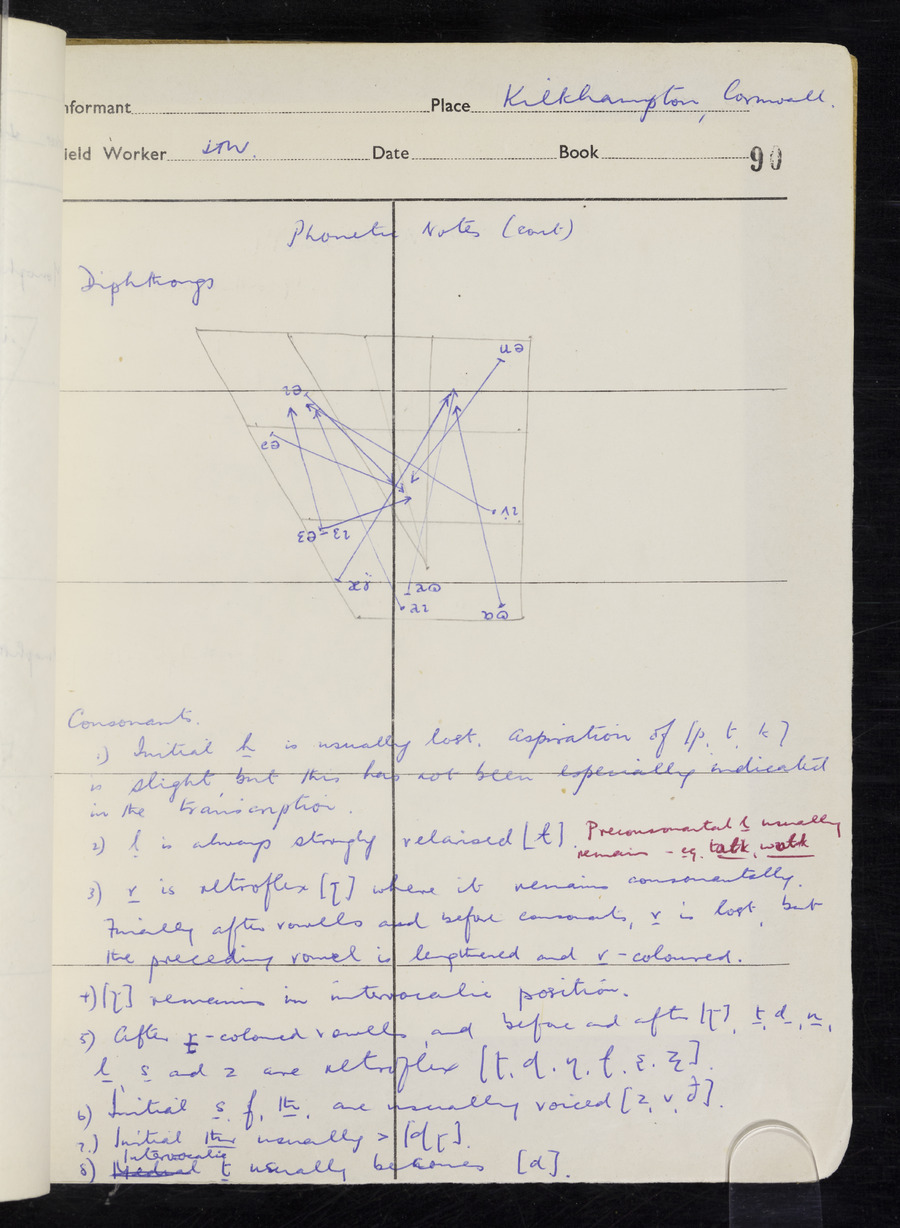 nformant Place Kilkhampton, Cornwall.
ield Worker Date Book 90
Phonetic Notes (cont)
Diphthongs
Consonants.
1) Initial h is usually lost. Aspiration of [p, t, k]
is slight, but this has not been especially indicated
in the transcription.
2) l is always strongly velarised [ɫ]. Preconsonantal l usually
remains – eg. talk, walk
3) r is retroflex [ɽ] where it remains consonantally.
Finally after vowells and before consonants, r is lost, but
the preceding vowel is lengthened and r-coloured.
4) [ɽ] remains in intervocalic position.
5) After r-coloured vowells, and before and after [ɽ], t, d, n,
l, s and z are retroflex [ʈ, ɖ, ɳ, ɭ, ʂ, ʐ].
6) Initial s, f, th, are usually voiced [z, v, ð].
7.) Initial thr usually > [dɽ].
Intervocalic
8) Medial t usually becomes [d].